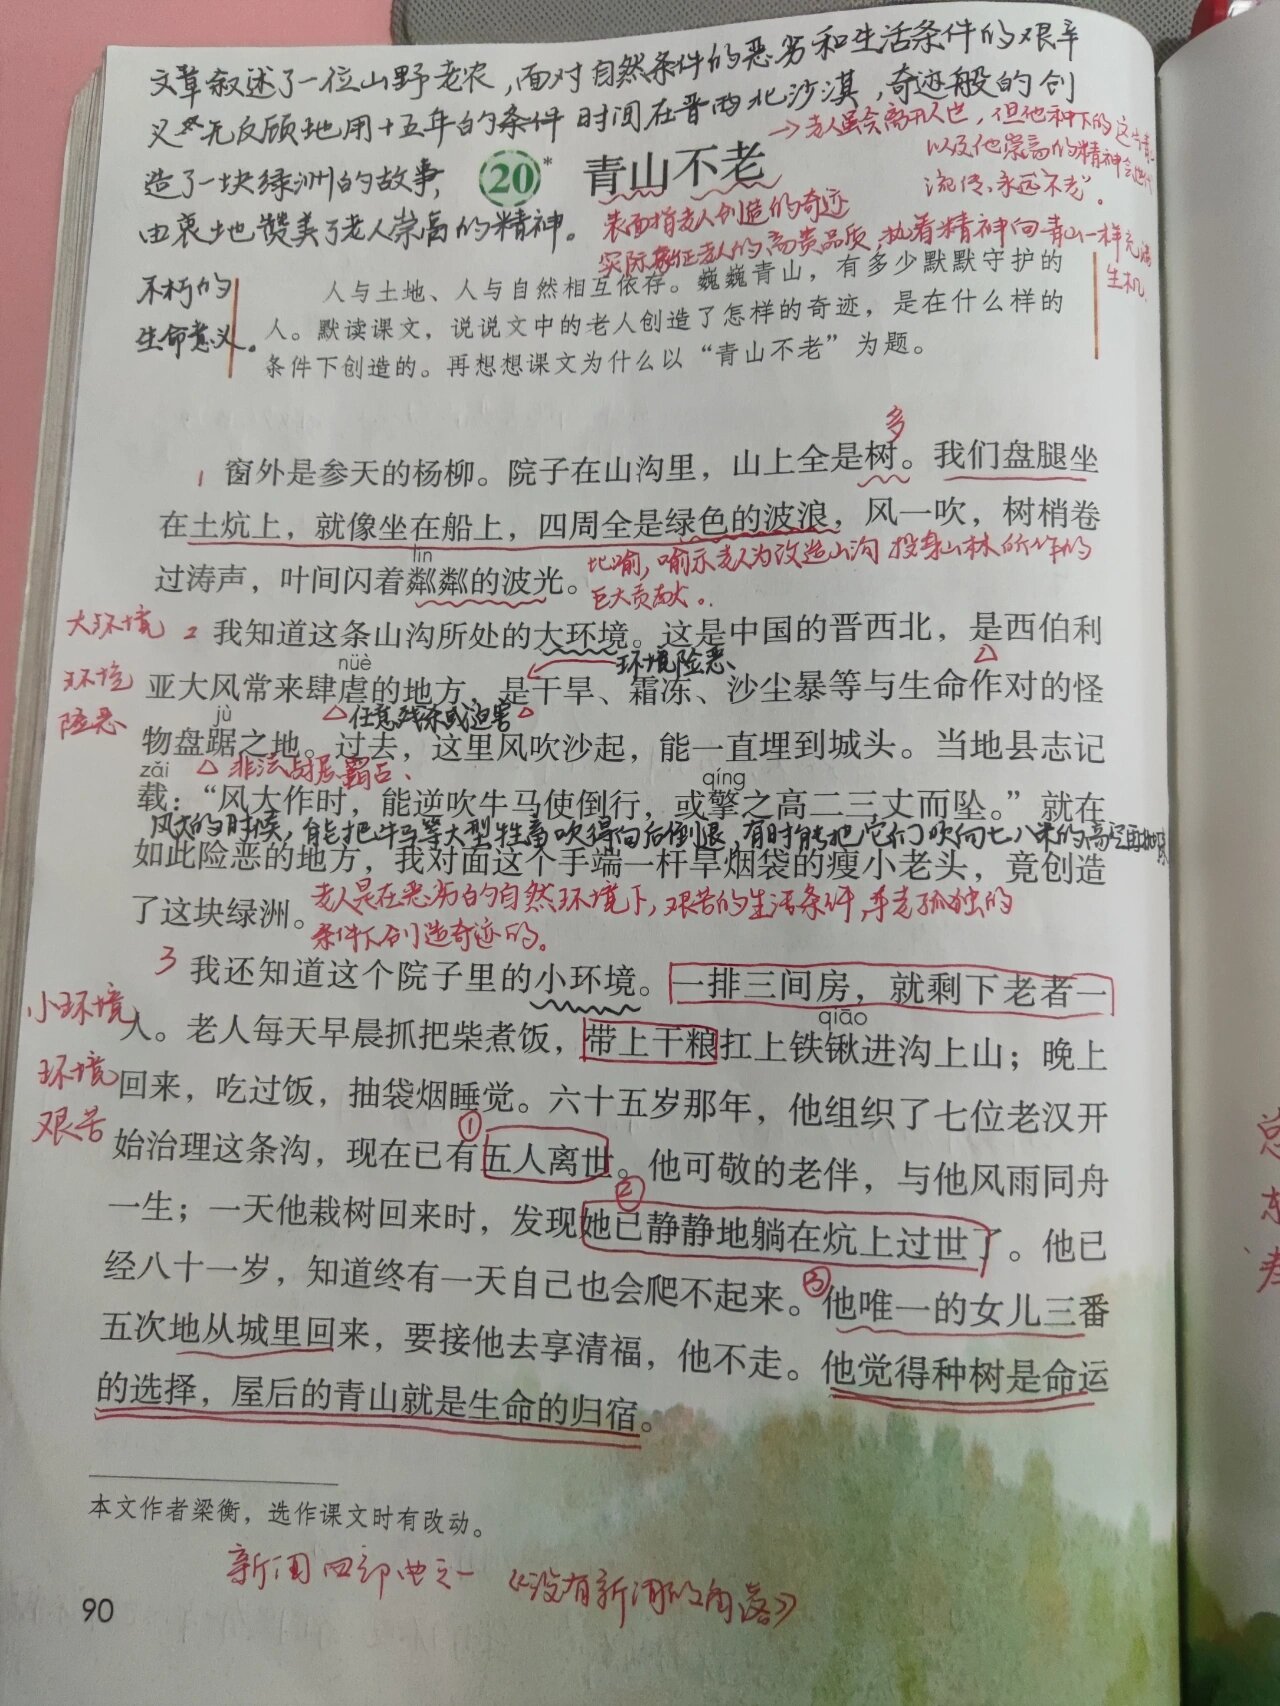 文章叙述了一位山野老农,面对自然条件的恶劣和生活条件的艰辛
义无反顾地用十五年的条件时间在晋西北沙漠,奇迹般的创
造了一块绿洲的故事,
由衷地赞美了老人崇高的精神。
20* 青山不老
→老人虽会离开人世,但他种下的这
以及他崇高的精神会
流传、永远“不老”。
表面指老人创造的奇迹
实际象征老人的高贵品质,执着精神向青山一样充满
生机
不朽的
生命意义。
人与土地、人与自然相互依存。巍巍青山,有多少默默守护的
人。默读课文,说说文中的老人创造了怎样的奇迹,是在什么样的
条件下创造的。再想想课文为什么以“青山不老”为题。
多
1 窗外是参天的杨柳。院子在山沟里,山上全是树。我们盘腿坐
在土炕上,就像坐在船上,四周全是绿色的波浪,风一吹,树梢卷
lín
过涛声,叶间闪着粼粼的波光。
比喻,喻示老人为改造山沟 投身山林所作的
巨大贡献。
大环境
2 我知道这条山沟所处的大环境。这是中国的晋西北,是西伯利
环境险恶、
nüè
环境
亚大风常来肆虐的地方,是干旱、霜冻、沙尘暴等与生命作对的怪
险恶
任意残杀或迫害
jù
物盘踞之地。过去,这里风吹沙起,能一直埋到城头。当地县志记
非法占据霸占、
zǎi qíng
载:“风大作时,能逆吹牛马使倒行,或擎之高二三丈而坠。”就在
风大的时候,能把牛马等大型牲畜吹得向后倒退,有时能把它们吹向七八米的高空再
如此险恶的地方,我对面这个手端一杆旱烟袋的瘦小老头,竟创造
了这块绿洲。
老人是在恶劣的自然环境下,艰苦的生活条件,年老孤独的
条件下创造奇迹的。
3 我还知道这个院子里的小环境。一排三间房,就剩下老者一
小环境
qiāo
人。老人每天早晨抓把柴煮饭,带上干粮扛上铁锹进沟上山;晚上
环境
回来,吃过饭,抽袋烟睡觉。六十五岁那年,他组织了七位老汉开
艰苦
①
始治理这条沟,现在已有五人离世。他可敬的老伴,与他风雨同舟
②
一生;一天他栽树回来时,发现她已静静地躺在炕上过世了。他已
经八十一岁,知道终有一天自己也会爬不起来。③他唯一的女儿三番
五次地从城里回来,要接他去享清福,他不走。他觉得种树是命运
的选择,屋后的青山就是生命的归宿。
本文作者梁衡,选作课文时有改动。
新闻四部曲之一《没有新闻的角落》
90
总